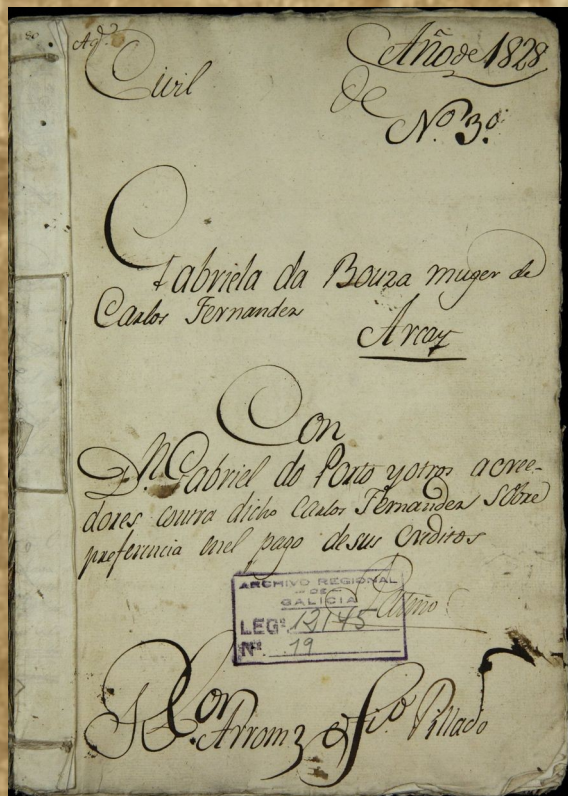 Civil
Año de 1828
de
Nº 3º
Gabriela da Bouza muger de
Carlos Fernandez
Arcay
Con
Dn Gabriel do Porto y otros acree-
dores contra dicho Carlos Fernandez Sobre
preferencia en el pago de sus Creditos
Patiño
ARCHIVO REGIONAL
DE
GALICIA
LEGº 12145
Nº 19
Ror Arrom
Pillado